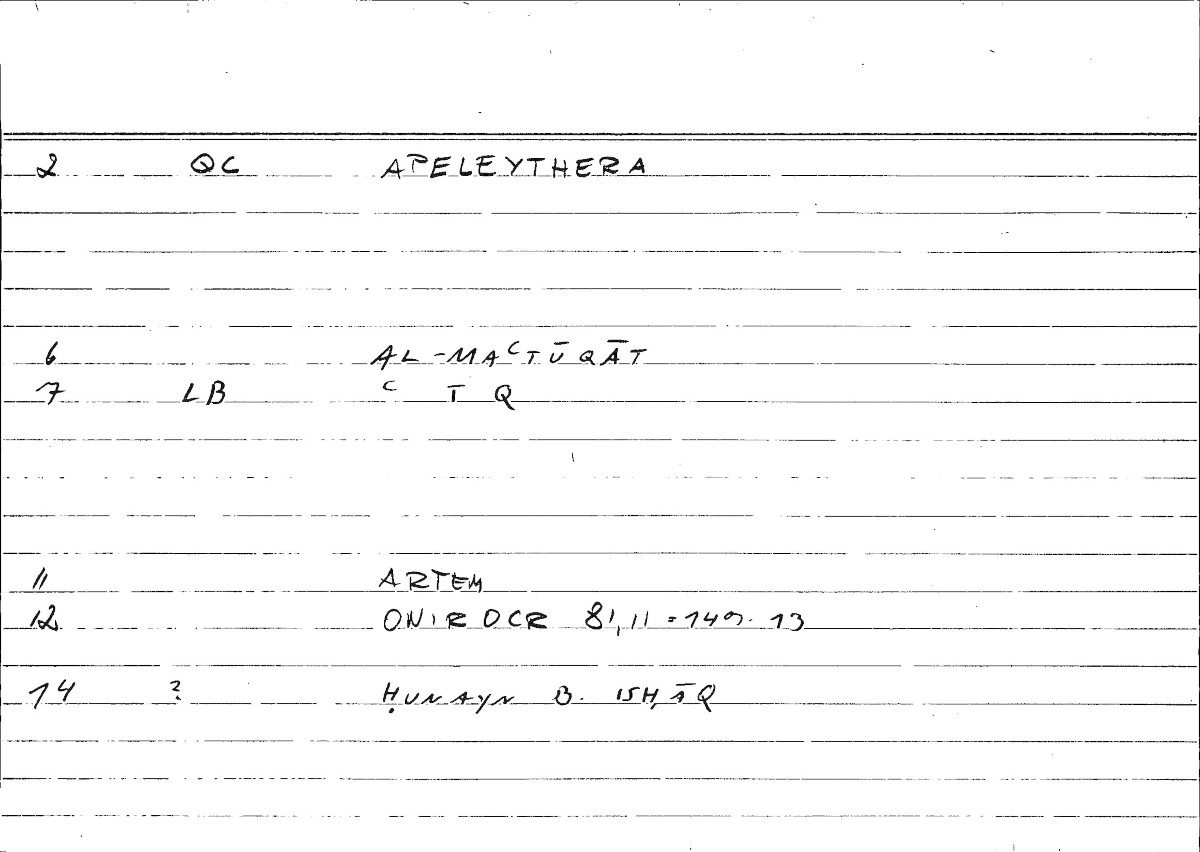 2 QC APELEYTHERA
6 AL-MAᶜTŪQĀT
7 LB ᶜ T Q
11 ARTEM
12 ONIROCR 81,11 = 149. 13
14 ? ḤUNAYN B. ISḤĀQ